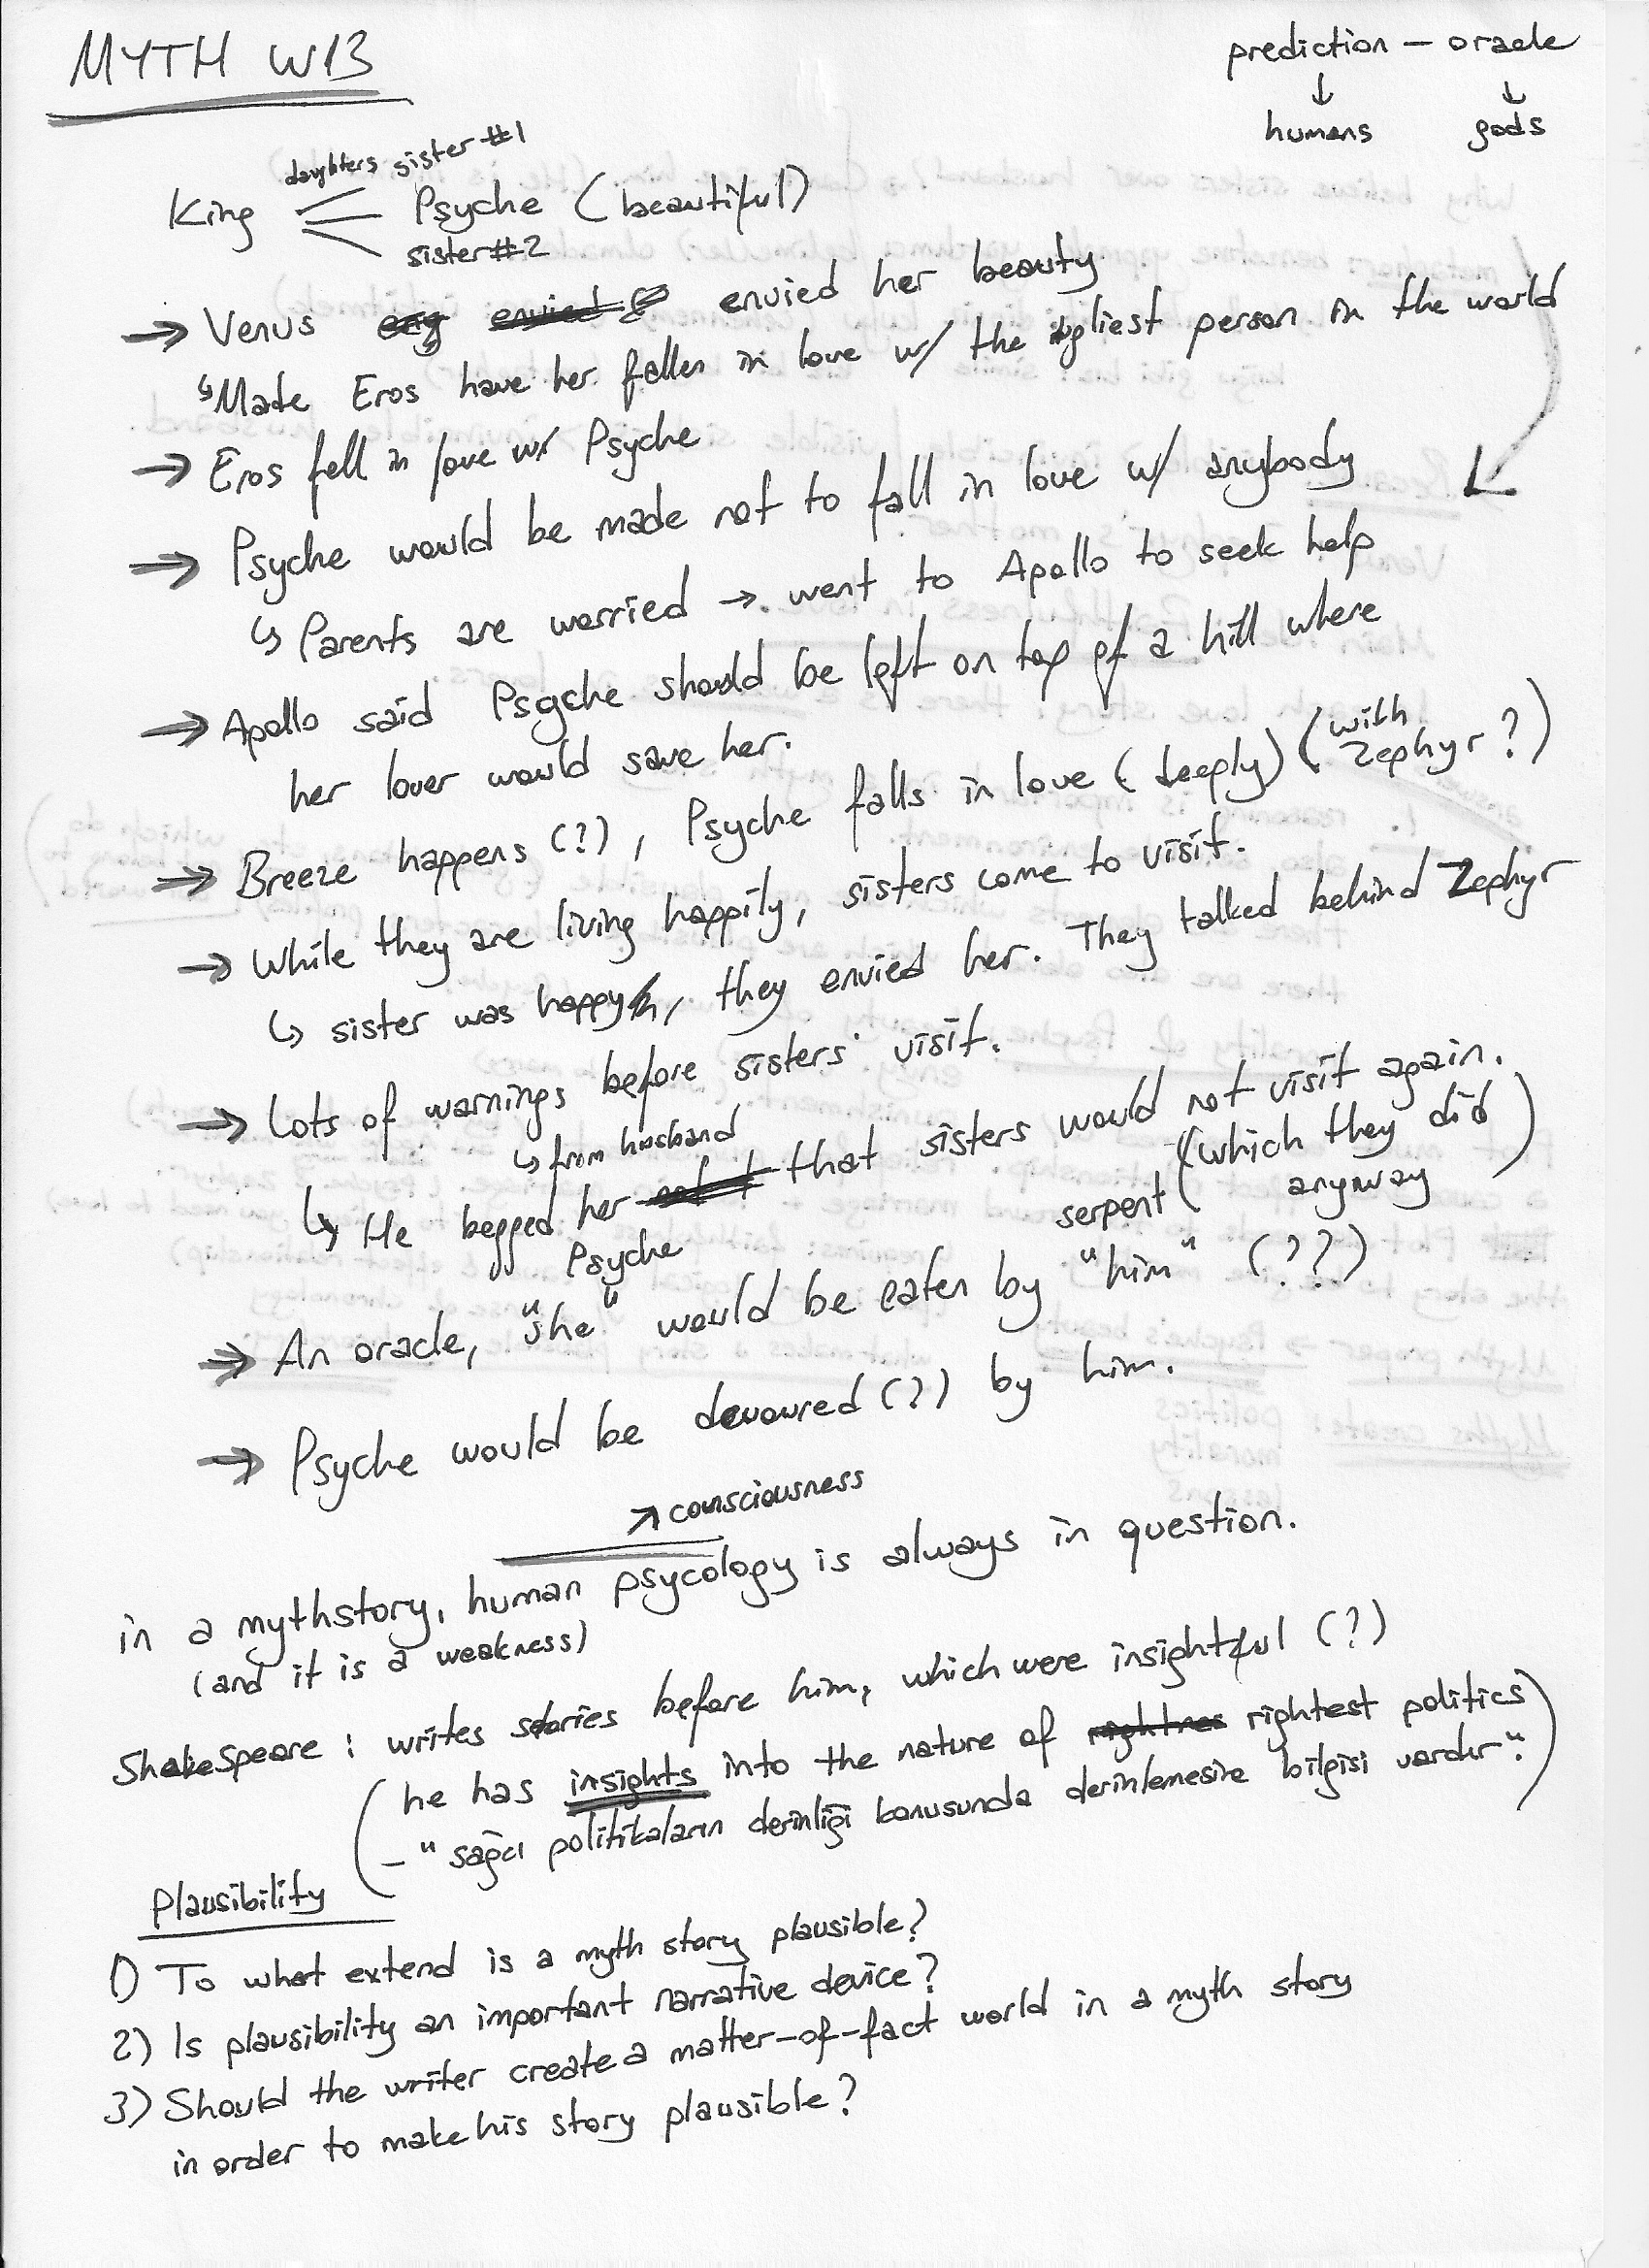 MYTH W13
prediction – oracle
↓ ↓
humans gods
daughters sister #1
King Psyche (beautiful)
sister #2
→ Venus envied her beauty
↳ Made Eros have her fallen in love w/ the ugliest person in the world
→ Eros fell in love w/ Psyche
→ Psyche would be made not to fall in love w/ anybody
↳ Parents are worried → went to Apollo to seek help
→ Apollo said Psyche should be left on top of a hill where
her lover would save her.
→ Breeze happens (?), Psyche falls in love (deeply) (with Zephyr?)
→ While they are living happily, sisters come to visit.
↳ sister was happy, they envied her. They talked behind Zephyr
→ Lots of warnings before sisters' visit.
↳ from husband
↳ He begged her that sisters would not visit again.
Psyche
(which they did
anyway)
serpent
→ An oracle, "she" would be eaten by "him" (??)
→ Psyche would be devoured (?) by him.
↗ consciousness
in a mythstory, human psycology is always in question.
(and it is a weakness)
Shakespeare : writes stories before him, which were insightful (?)
(he has insights into the nature of rightest politics
– "sağcı politikaların derinliği konusunda derinlemesine bilgisi vardır".)
Plausibility
1) To what extend is a myth story plausible?
2) Is plausibility an important narrative device?
3) Should the writer create a matter-of-fact world in a myth story
in order to make his story plausible?